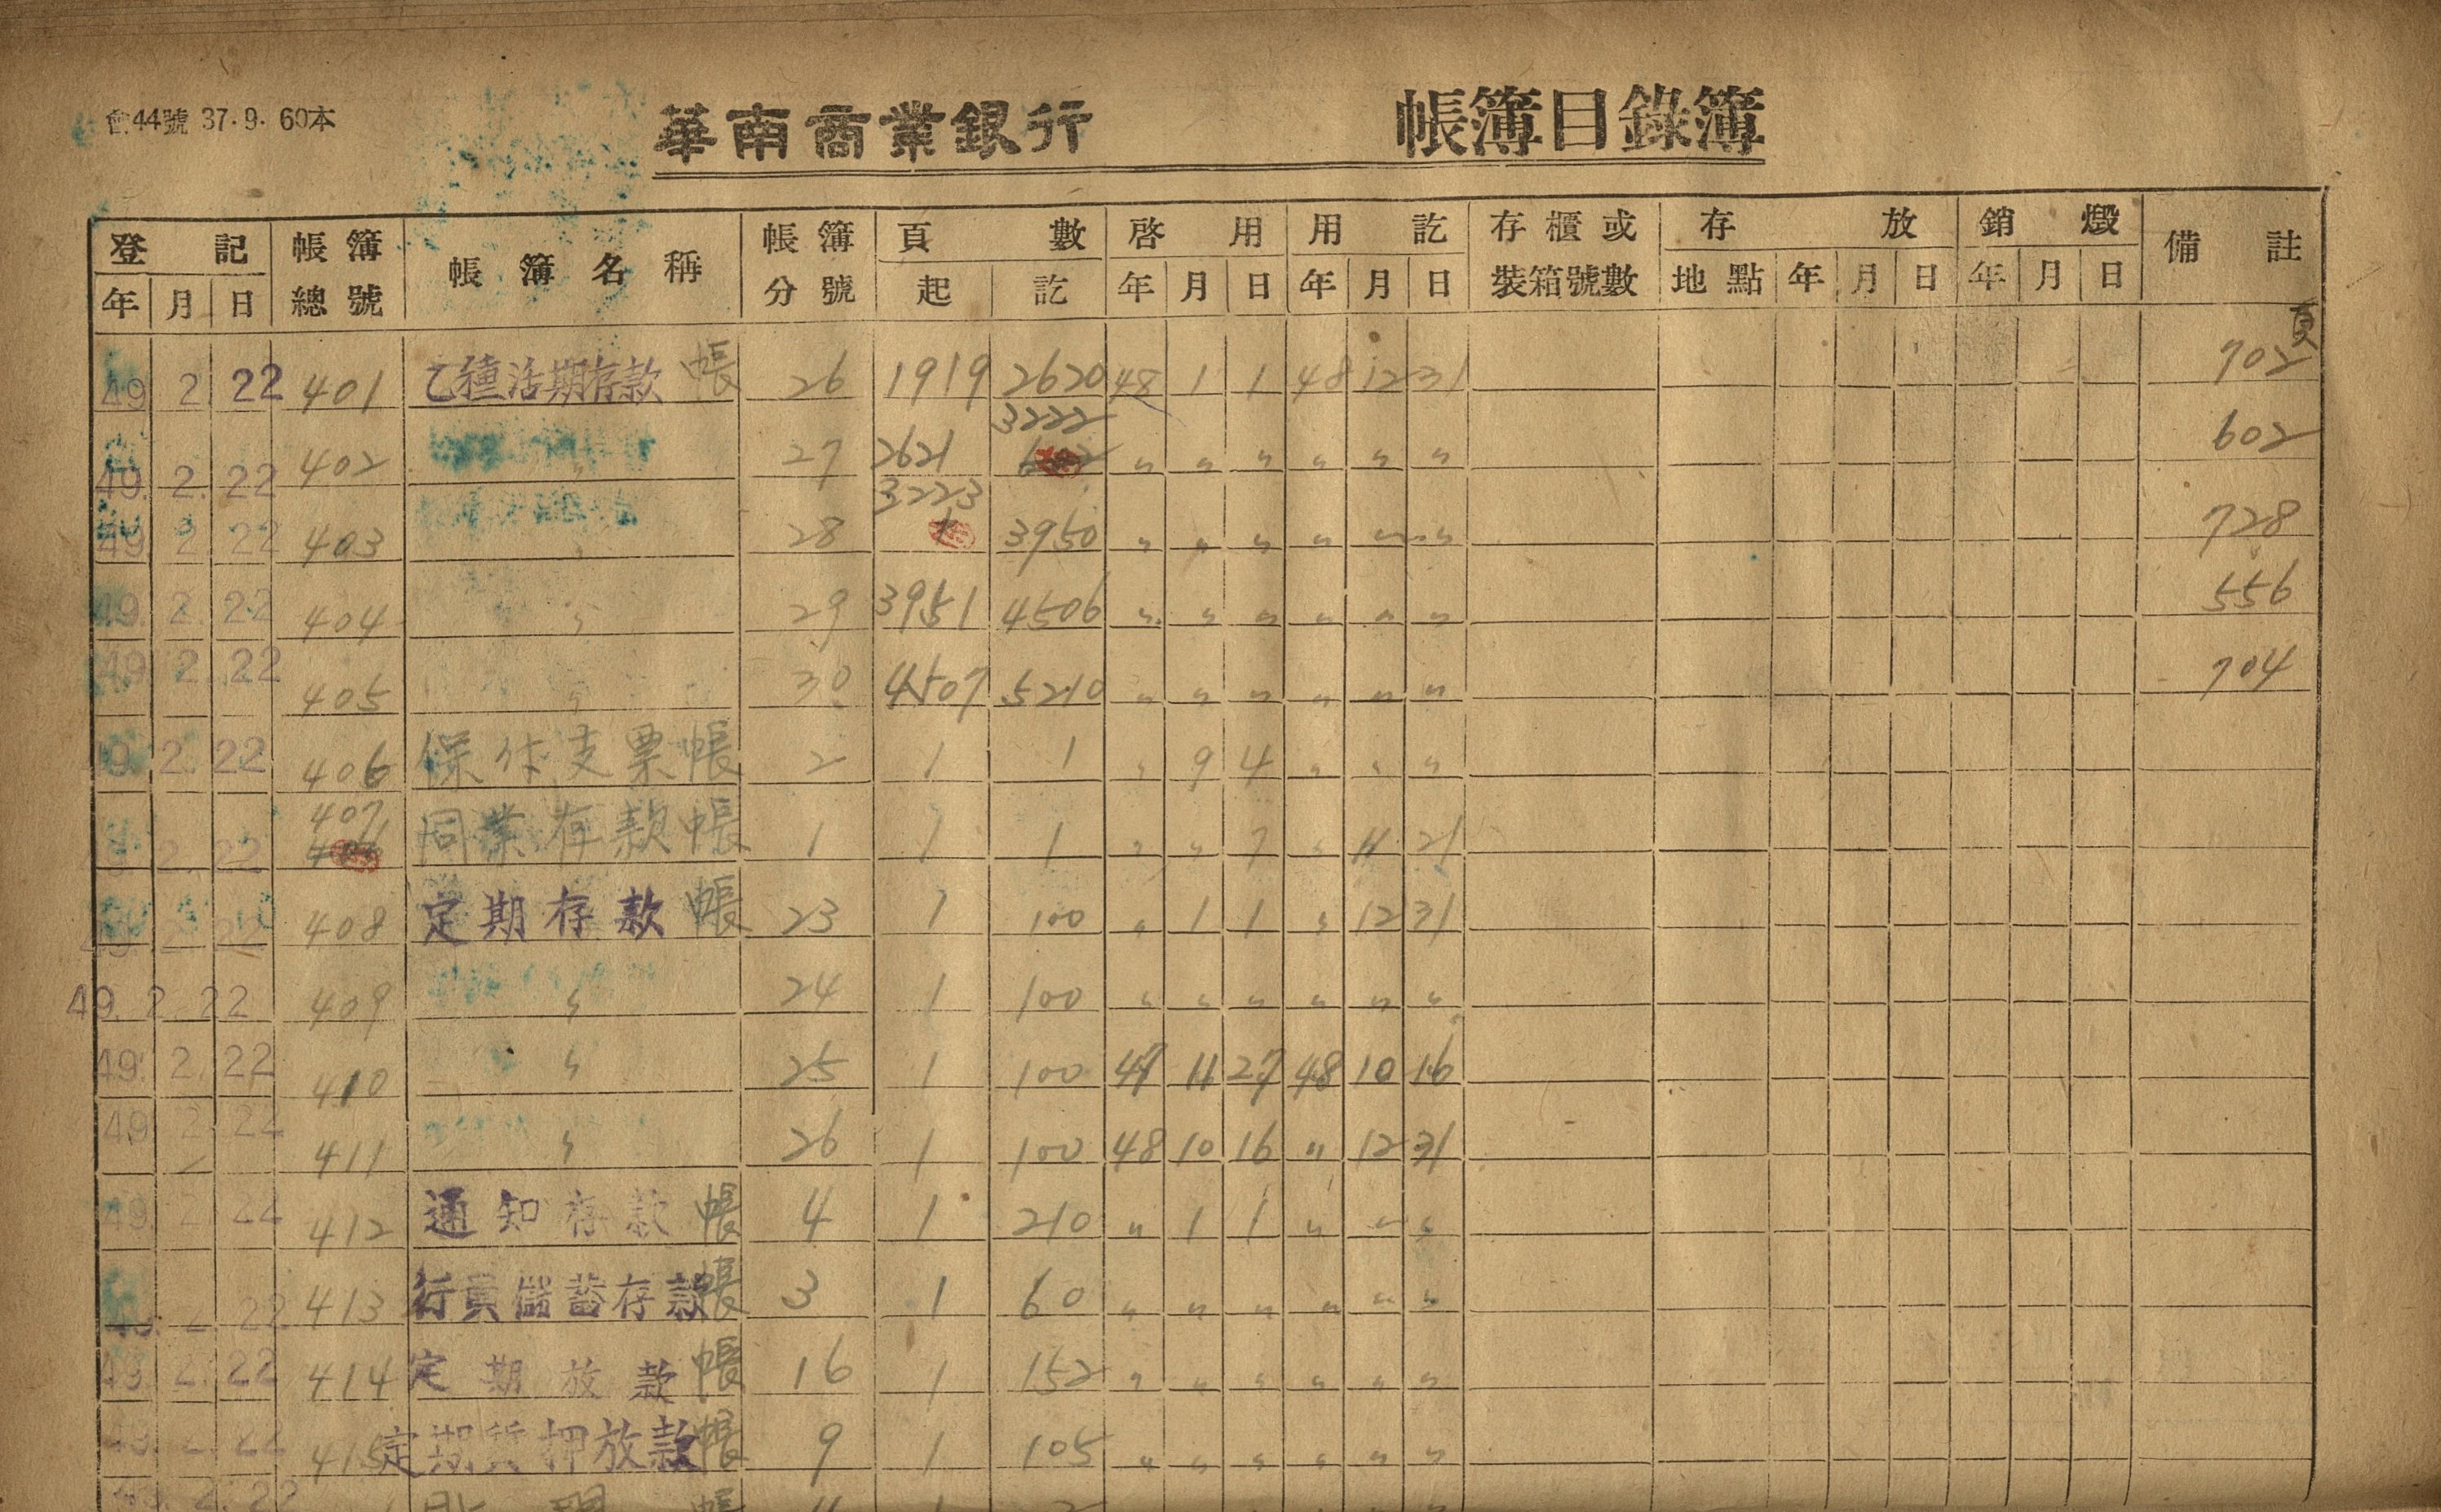 會44號 37.9. 60本
華南商業銀行 帳簿目錄簿
登記 帳簿 帳簿名稱 帳簿 頁數 啓用 用訖 存櫃或 存放 銷燬 備註
年 月 日 總號 分號 起 訖 年 月 日 年 月 日 裝箱號數 地點 年 月 日 年 月 日
頁
49. 2. 22 401 乙種活期存款帳 26 1919 2620 48 1 1 48 12 31 702
3222
49. 2. 22 402 〃 27 2621 〃 〃 〃 〃 〃 〃 602
3223
49. 2. 22 403 〃 28 3950 〃 〃 〃 〃 〃 〃 728
49. 2. 22 404 〃 29 3951 4506 〃 〃 〃 〃 〃 〃 556
49. 2. 22 405 〃 30 4507 5210 〃 〃 〃 〃 〃 〃 704
49. 2. 22 406 保付支票帳 2 1 1 〃 9 4 〃 〃 〃
407
2. 22 同業存款帳 1 1 1 〃 〃 7 〃 11 21
49. 2. 22 408 定期存款帳 23 1 100 〃 1 1 〃 12 31
49. 2. 22 409 〃 24 1 100 〃 〃 〃 〃 〃 〃
49. 2. 22 410 〃 25 1 100 47 11 27 48 10 16
49. 2. 22 411 〃 26 1 100 48 10 16 〃 12 31
49. 2. 22 412 通知存款帳 4 1 210 〃 1 1 〃 〃 〃
49. 2. 22 413 行員儲蓄存款帳 3 1 60 〃 〃 〃 〃 〃 〃
49. 2. 22 414 定期放款帳 16 1 152 〃 〃 〃 〃 〃 〃
49. 2. 22 415 定期質押放款帳 9 1 105 〃 〃 〃 〃 〃 〃
2. 22 帳